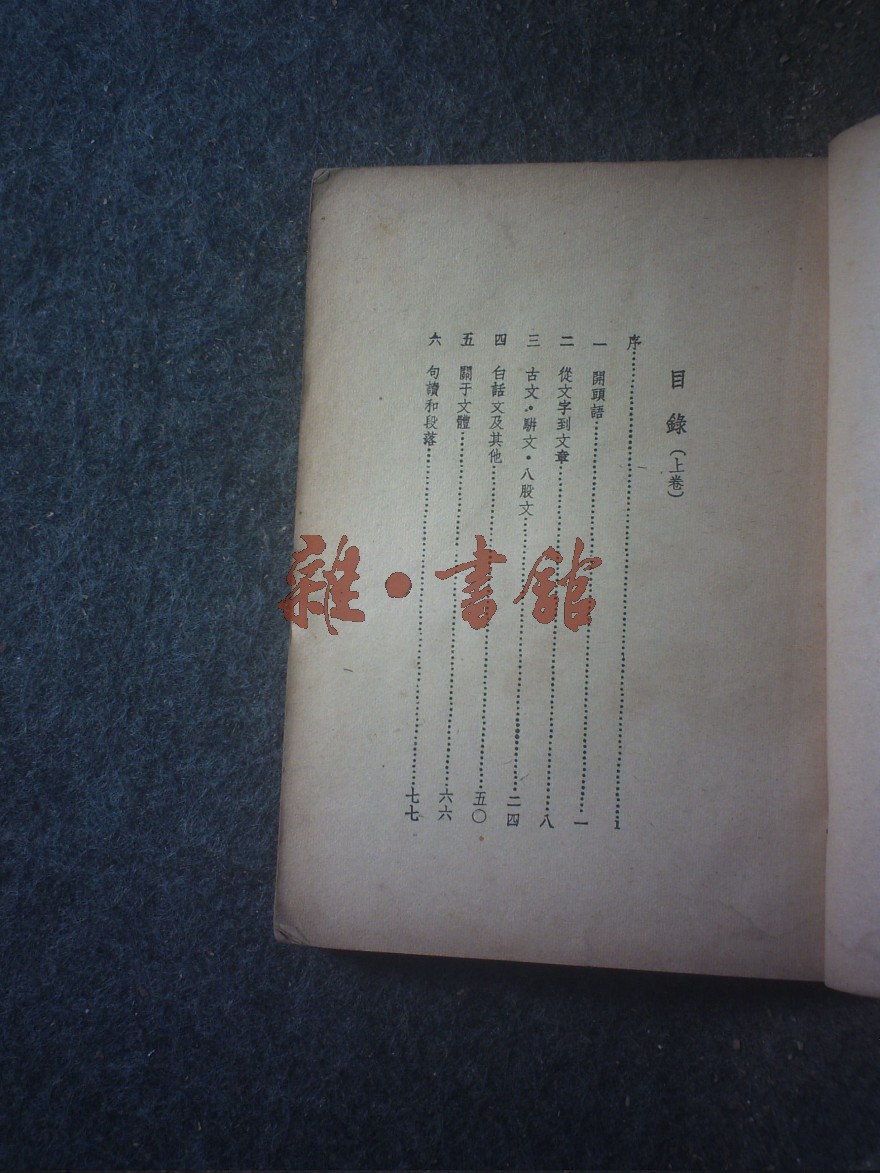 目錄(上卷)
序 1
一 開頭語 一
二 從文字到文章 八
三 古文·駢文·八股文 二四
四 白話文及其他 五〇
五 關于文體 六六
六 句讀和段落 七七
雜·書館